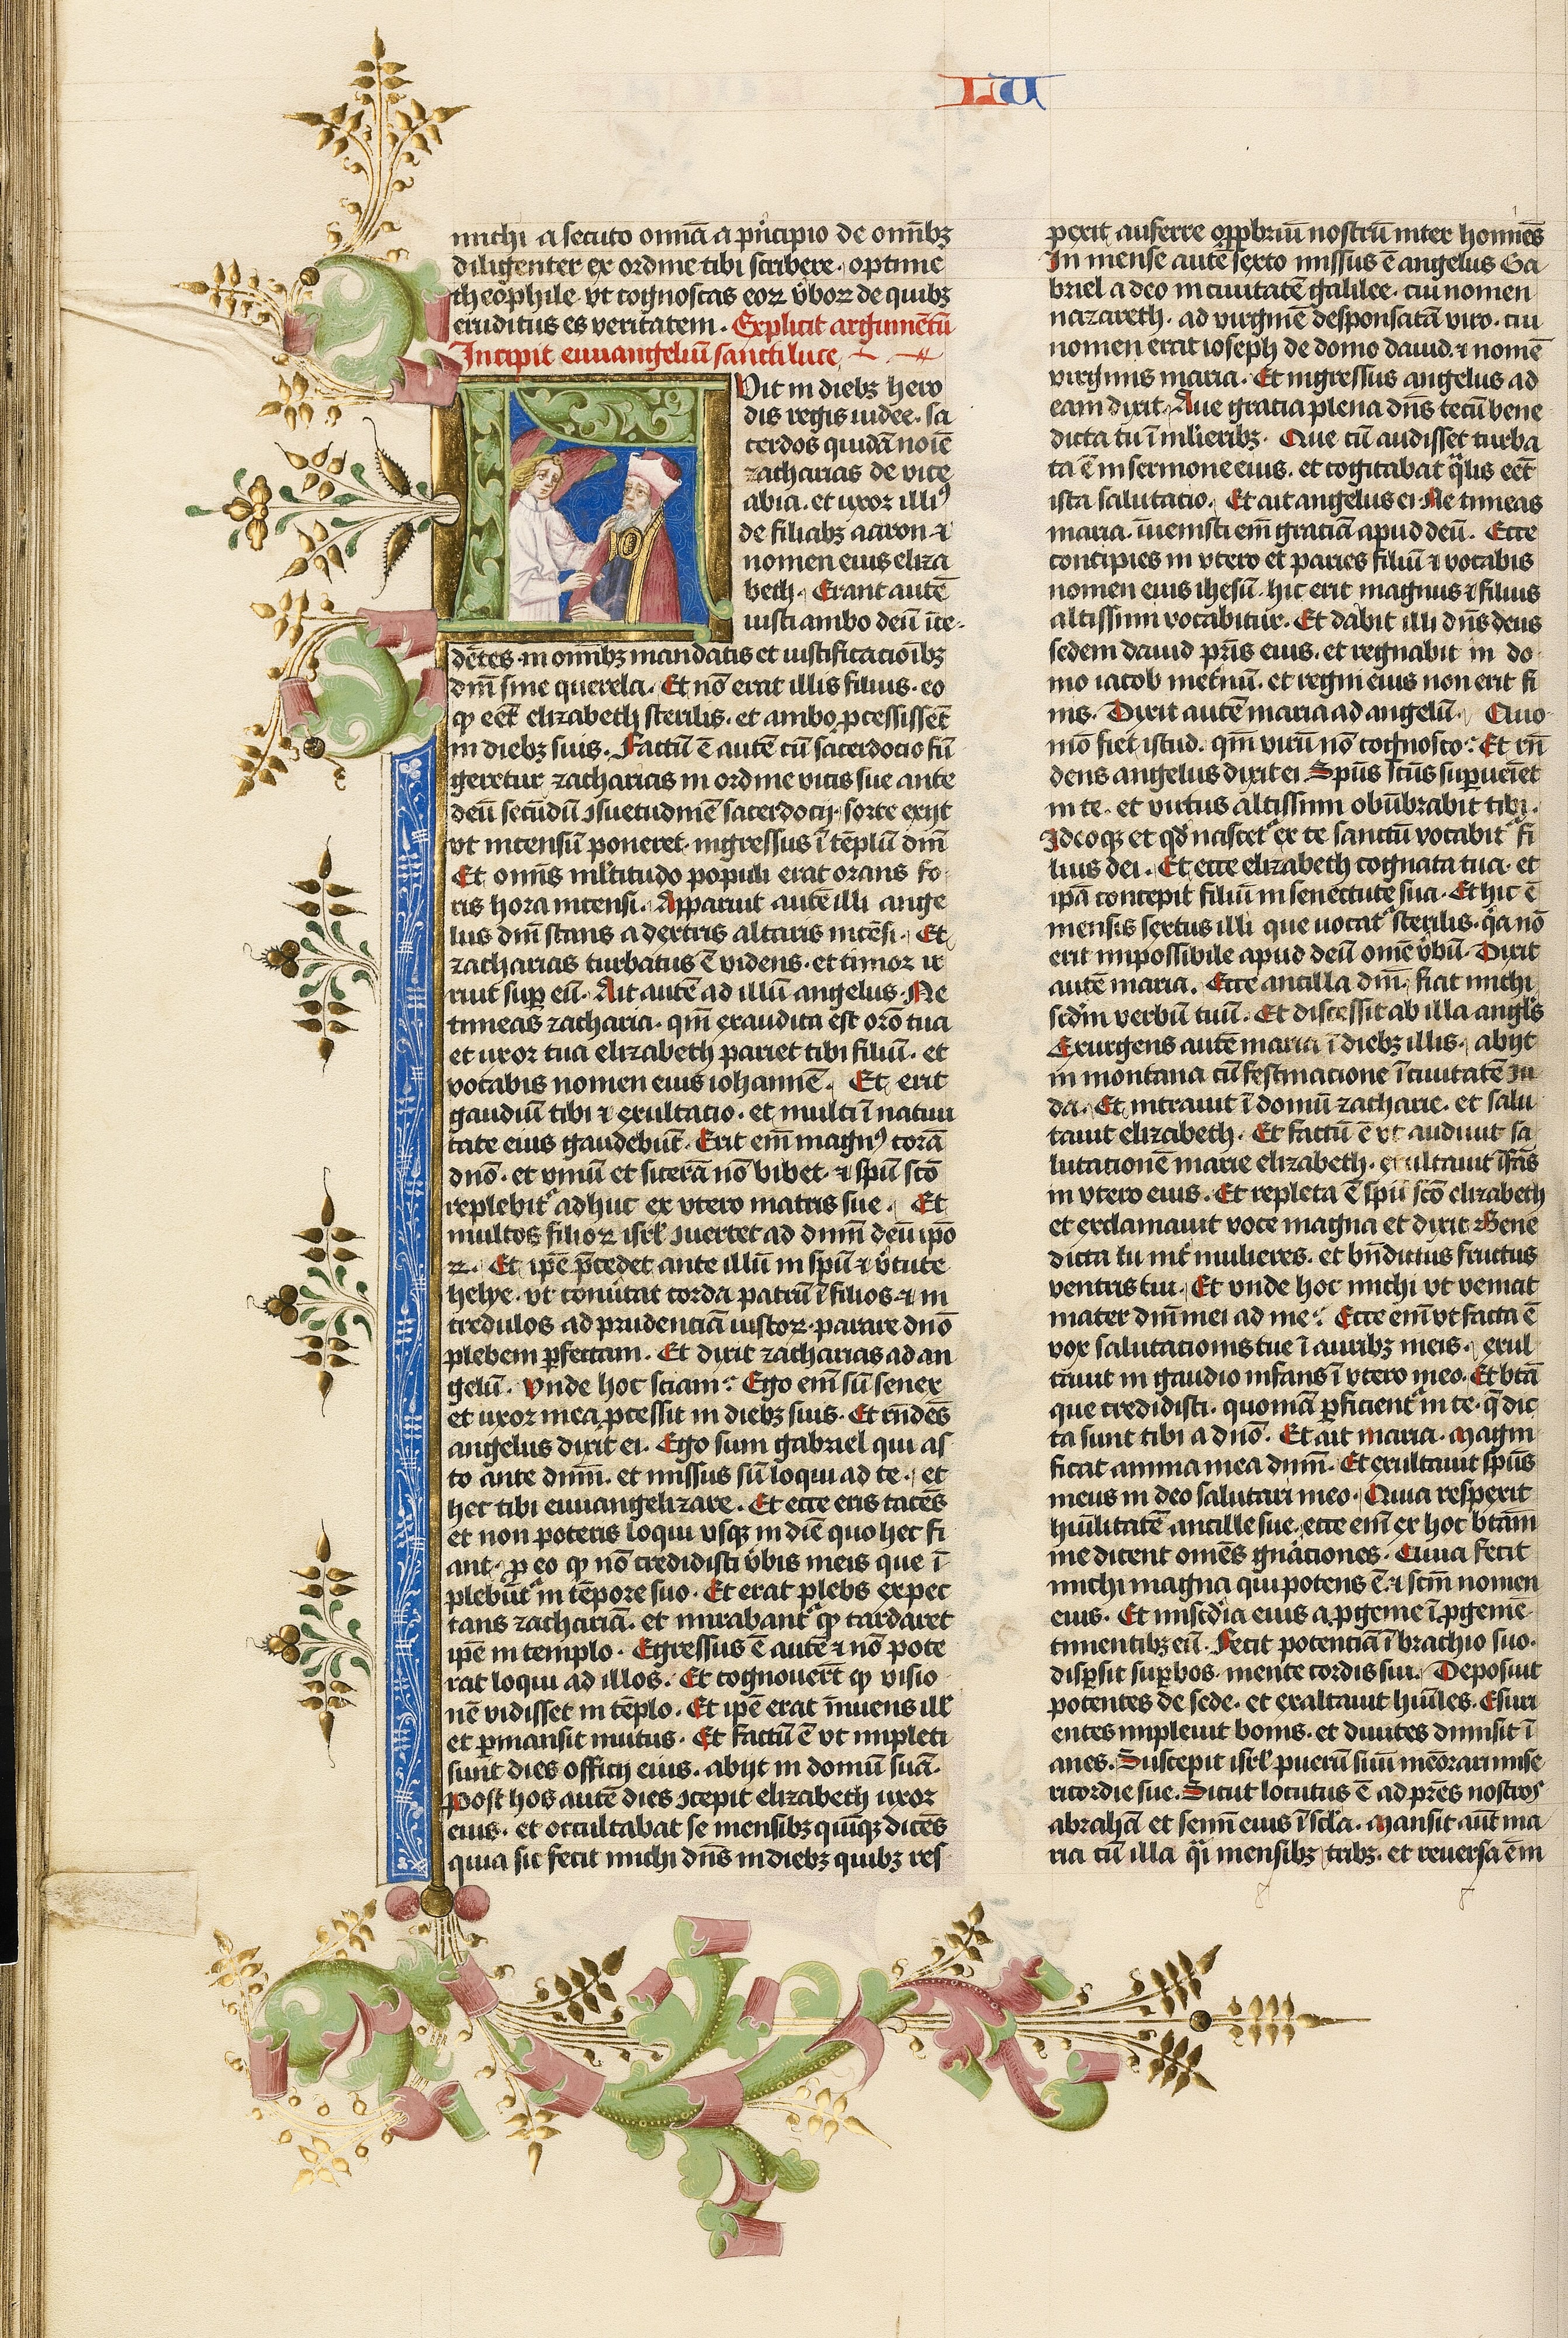 LU
michi a secuto om̅a a pͥncipio de om̅ibꝫ
diligenter ex ordine tibi scribere · optime
theophile vt cognoscas eoꝝ v̓boꝝ de quibꝫ
eruditus es veritatem · Explicit argume̅tu̅
Incipit euuangeliu̅ sancti luce
Vit in diebꝫ hero
dis regis iudee · sa
cerdos quida̅ no̅ie̅
zacharias de vice
abia · et uxor illiꝰ
de filiabꝫ aaron · ⁊
nomen eius eliza
beth · Erant aute̅
iusti ambo deu̅ i̅ce·
de̅tes · in om̅ibꝫ mandatis et iustificacio̅ibꝫ
dn̅i sine querela · Et no̅ erat illis filius · eo
ꝙ eet̅ elizabeth sterilis · et ambo ꝓcessisse̅t
in diebꝫ suis · Factu̅ e̅ aute̅ cu̅ sacerdocio fu̅
geretur zacharias in ordine vicis sue ante
deu̅ secu̅du̅ ꝯsuetudine̅ sacerdocij · sorte exijt
vt incensu̅ poneret · ingressus i̅ te̅plu̅ dn̅i
Et omn̅s ml̅titudo populi erat orans fo·
ris hora incensi · Apparuit aute̅ illi ange
lus dn̅i stans a dextris altaris ince̅si · Et
zacharias turbatus e̅ videns · et timor ir
ruit suꝑ eu̅ · Ait aute̅ ad illu̅ angelus · Ne
timeas zacharia · qm̅ exaudita est or̅o tua
et uxor tua elizabeth pariet tibi filiu̅ · et
vocabis nomen eius iohanne̅ · Et erit
gaudiu̅ tibi ⁊ exultatio · et multi i̅ natiui
tate eius gaudebu̅t · Erit em̅ magnꝰ cora̅
dn̅o · et vinu̅ et sicera̅ no̅ bibet · ⁊ sp̅u sc̅o
replebitᷣ adhuc ex vtero matris sue · Et
multos filioꝝ isrl̅ ꝯuertet ad dn̅m deu̅ ip̅o
ꝝ · Et ip̅e p̅cedet ante illu̅ in sp̅u ⁊ v̓tute
helye · vt conu̓tat corda patru̅ i̅ filios · ⁊ in
credulos ad prudencia̅ iustoꝝ · parare dn̅o
plebem ꝑfectam · Et dixit zacharias ad an
gelu̅ · vnde hoc sciam · Ego em̅ su̅ senex
et uxor mea ꝓcessit in diebꝫ suis · Et rn̅de̅s
angelus dixit ei · Ego sum gabriel qui as
to ante dn̅m · et missus su̅ loqui ad te · et
hec tibi euuangelizare · Et ecce eris tace̅s
et non poteris loqui vsqꝫ in die̅ quo hec fi
ant · ꝓ eo ꝙ no̅ credidisti v̓bis meis que i̅
plebu̅tᷣ in te̅pore suo · Et erat plebs expec
tans zacharia̅ · et mirabantᷣ ꝙ tardaret
ip̅e in templo · Egressus e̅ aute̅ ⁊ no̅ pote
rat loqui ad illos · Et cognouer̅t ꝙ visio
ne̅ vidisset in te̅plo · Et ip̅e erat i̅nuens ill̅
et ꝑmansit mutus · Et factu̅ e̅ vt impleti
sunt dies officij eius · abijt in domu̅ sua̅ ·
Post hos aute̅ dies ꝯcepit elizabeth uxor
eius · et occultabat se mensibꝫ qui̅qꝫ dice̅s
quia sic fecit michi dn̅s in diebꝫ quibꝫ res
pexit auferre opꝓbriu̅ nostru̅ inter homi̅es
In mense aute̅ sexto missus e̅ angelus Ga
briel a deo in ciuitate̅ galilee · cui nomen
nazareth · ad virgine̅ desponsata̅ viro · cui
nomen erat ioseph de domo dauid · ⁊ nome̅
virginis maria · Et ingressus angelus ad
eam dixit · Aue gracia plena dn̅s tecu̅ bene
dicta tu i̅ ml̅ieribꝫ · Que cu̅ audisset turba
ta e̅ in sermone eius · et cogitabat qͣlis eet̅
ista salutacio · Et ait angelus ei · Ne timeas
maria · i̅uenisti em̅ gracia̅ apud deu̅ · Ecce
concipies in vtero et paries filiu̅ ⁊ vocabis
nomen eius ihesu̅ · hic erit magnus ⁊ filius
altissimi vocabitur · Et dabit illi dn̅s deus
sedem dauid pr̅is eius · et regnabit in do·
mo iacob inet̓nu̅ · et regni eius non erit fi
nis · Dixit aute̅ maria ad angelu̅ · Quo
mo̅ fiet istud · qm̅ viru̅ no̅ cognosco · Et rn̅
dens angelus dixit ei · Sp̅us sc̅us suꝑueniet
in te · et virtus altissimi obu̅brabit tibi ·
Ideoqꝫ et qd̓ nascetᷣ ex te sanctu̅ vocabitᷣ fi
lius dei · Et ecce elizabeth cognata tua · et
ipa̅ concepit filiu̅ in senectute sua · Et hic e̅
mensis sextus illi que uocatᷣ sterilis · qͥa no̅
erit impossibile apud deu̅ om̅e v̓bu̅ · Dixit
aute̅ maria · Ecce ancilla dn̅i · fiat michi
scd̓m verbu̅ tuu̅ · Et discessit ab illa angl̓s
Exurgens aute̅ maria i̅ diebꝫ illis · abijt
in montana cu̅ festinacione i̅ ciuitate̅ Iu
da · Et intrauit i̅ domu̅ zacharie · et salu
tauit elizabeth · Et factu̅ e̅ vt audiuit sa
lutatione̅ marie elizabeth · exultauit i̅fa̅s
in vtero eius · Et repleta e̅ sp̅u sc̅o elizabeth
et exclamauit voce magna et dixit · Bene
dicta tu int̓ mulieres · et bn̅dictus fructus
ventris tui · Et vnde hoc michi vt veniat
mater dn̅i mei ad me · Ecce em̅ vt facta e̅
vox salutacionis tue i̅ auribꝫ meis · exul
tauit in gaudio infans i̅ vtero meo · Et bt̅a
que credidisti · quonia̅ ꝑficientᷣ in te · q̅ dic
ta sunt tibi a dn̅o · Et ait maria · Magni
ficat anima mea dn̅m · Et exultauit sp̅us
meus in deo salutari meo · Quia respexit
hu̅ilitate̅ ancille sue · ecce em̅ ex hoc bt̅am
me dicent om̅es gn̅aciones · Quia fecit
michi magna qui potens e̅ · ⁊ sc̅m nomen
eius · Et misc̅dia eius a ꝓgenie i̅ ꝓgenie
timentibꝫ eu̅ · Fecit potencia̅ i̅ brachio suo ·
disꝑsit suꝑbos · mente cordis sui · Deposuit
potentes de sede · et exaltauit hu̅iles · Esuri
entes impleuit bonis · et diuites dimisit i̅
anes · Suscepit isrl̅ pueru̅ suu̅ me̅orari mise
ricordie sue · Sicut locutus e̅ ad pr̅es nostros
abraha̅ et semi̅ eius i̅ scl̅a · Mansit aut̅ ma
ria cu̅ illa qͣi mensibꝫ tribꝫ · et reuersa e̅ in